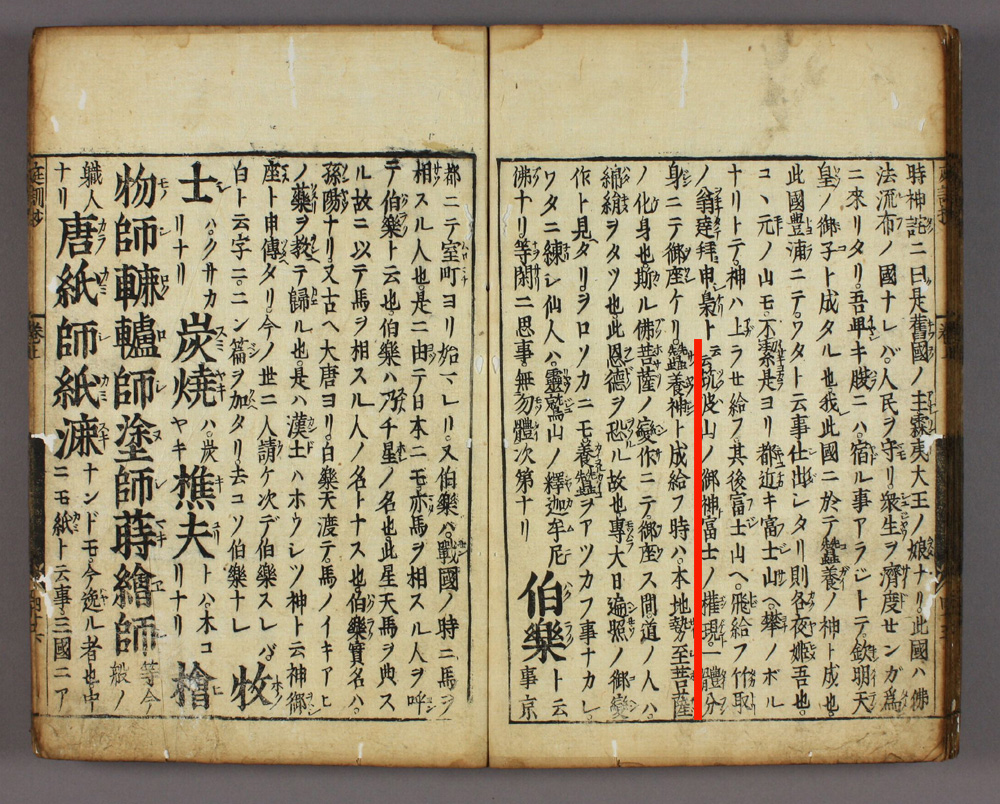 時神詫ニ曰是舊國ノ主霖夷大王ノ娘ナリ此國ハ佛
法流布ノ國ナレバ人民ヲ守リ衆生ヲ濟度センガ爲
ニ來リタリ。吾興キ ニハ宿ル事アラジトテ。欽明天
皇ノ御子ト成タル也。我此國ニ於テ蠶養ノ神ト成也。
此國豊浦ニテワタト云事仕出シタリ則各夜姫吾也。
コヽ元ノ山モ不 是ヨリ都近キ富士山ヘ攀ノボル
ナリトテ。神ハ上ラせ給フ其後富士山ヘ。飛給フ竹取
ノ翁 拜申梟ト云筑波山ノ御神富士ノ權現。一體分
身ニテ御座ケリ。蠶養神ト成給フ時ハ。本地勢至菩薩
ノ化身也斯ル佛菩薩ノ變作ニテ御座ス間道ノ人ハ。
綿絹ヲタツ也此恩德ヲ恐ル故也專大日遍照ノ御變
作ト見タリヲロソカニモ養蠶ヲアツカフ事ナカレ。
ワタニ練シ仙人ハ。靈鷲山ノ釋迦牟尼
佛ナリ。等閑ニ思事。無勿體次第ナリ
伯樂ト云事京
都ニテ室町ヨリ始ヽレリ。又伯樂ハ。戰國ノ時ニ馬ヲ
相スル人也是ニ由テ日本ニモ亦馬ヲ相スル人ヲ呼
テ伯樂ト云也。伯樂ハ乃チ星ノ名也。此星天馬ヲ典ス
ル故ニ以テ馬ヲ相スル人ノ名トナス也。伯樂實名ハ。
孫陽ナリ。又古ヘ大唐ヨリ。白樂天渡テ。馬ノイキアヒ
ノ藥ヲ教テ歸ル也。是ハ漢土ハホウシツ神ト云神御
座ト申傳タリ。今ノ世ニ人請ケ次デ伯樂スレバ
白ト云字ニ。ニン篇ヲ加タリ去コソ伯樂ナレ
牧
士ハ。クサカリナリ
炭燒ハ。炭ヤキ
樵夫トハ。木コリナリ
檜
物師
轆轤師
塗師
蒔繪師等今般ノ
職人
唐紙師
紙漉ナンドモ。今逸ル者也中
ナリニモ紙ト云事。三國ニア